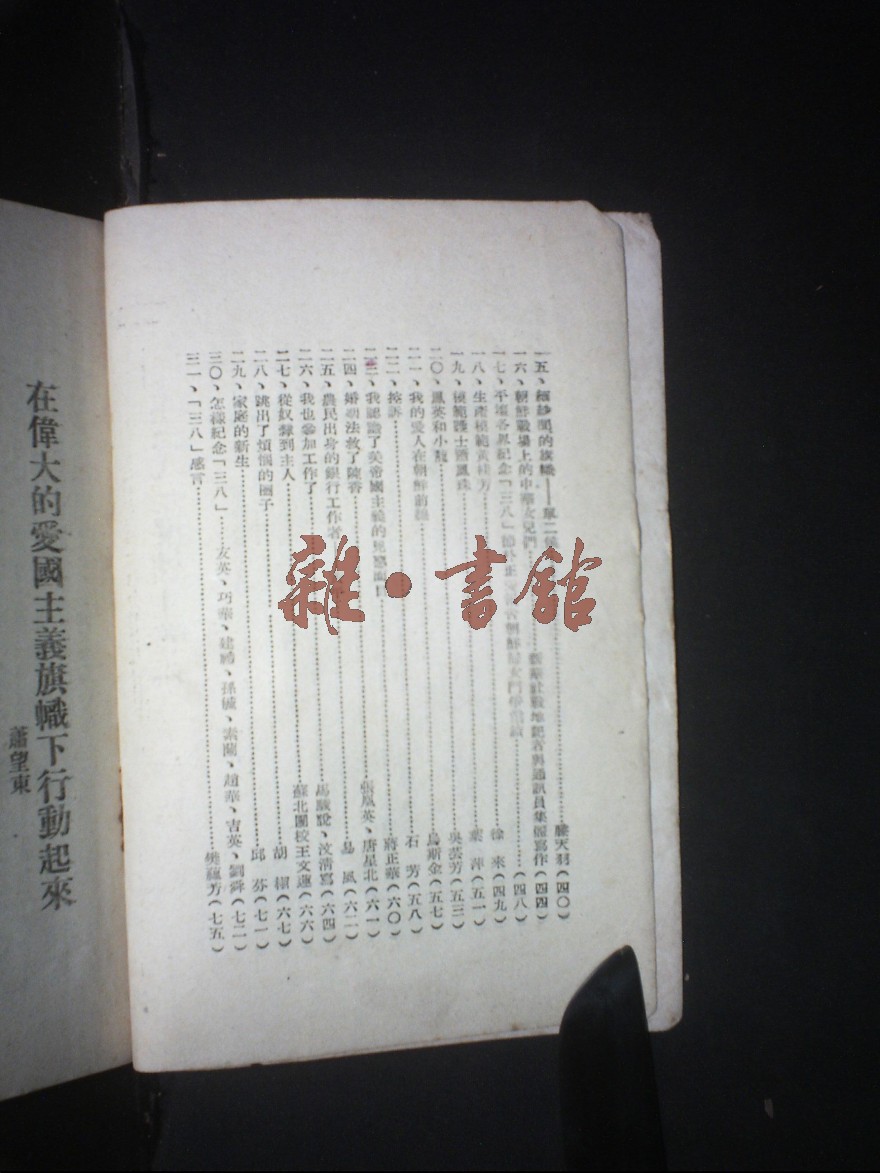 一五、細紗間的旗幟——單二 滕天羽(四〇)
一六、朝鮮戰場上的中華女兒們 新華社戰地記者與通訊員集體寫作(四四)
一七、平壤各界紀念「三八」節 朝鮮婦女 (四八)
一八、生產模範黃桂芳 徐來(四九)
一九、模範護士 鳳珠 葉萍(五一)
二〇、鳳英和小龍 吳芸芳(五三)
二一、我的愛人在朝鮮前線 馬斯金(五七)
二二、控訴 石芳(五八)
二三、我認識了美帝國主義的 面目 蔣正華(六〇)
二四、婚姻法救了陳香 張鳳英、唐星北(六一)
二五、農民出身的銀行工作者 易風(六二)
二六、我也參加工作了 馬駿說、汶清寫(六四)
二七、從奴隸到主人 蘇北團校王文蓮(六六)
二八、跳出了煩惱的圈子 胡楨(六七)
二九、家庭的新生 邱芬(七一)
三〇、怎樣紀念「三八」 友英、巧華、建 、孫毓、素蘭、趙華、吉英、劉舜(七二)
三一、「三八」感言 樊蘊芳(七五)
在偉大的愛國主義旗幟下行動起來
蕭望東
雜·書館